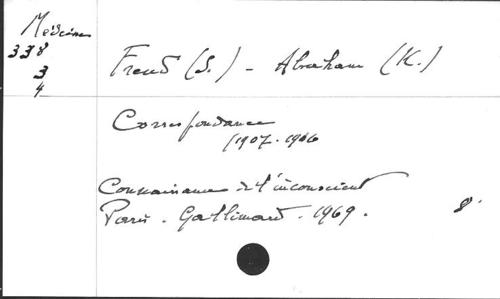 Médecine
338
3
4
Freud (S.) - Abraham (K.)
Correspondance
(1907-1926
Connaissance de l'inconscient
Paris. Gallimard. 1969. 8°